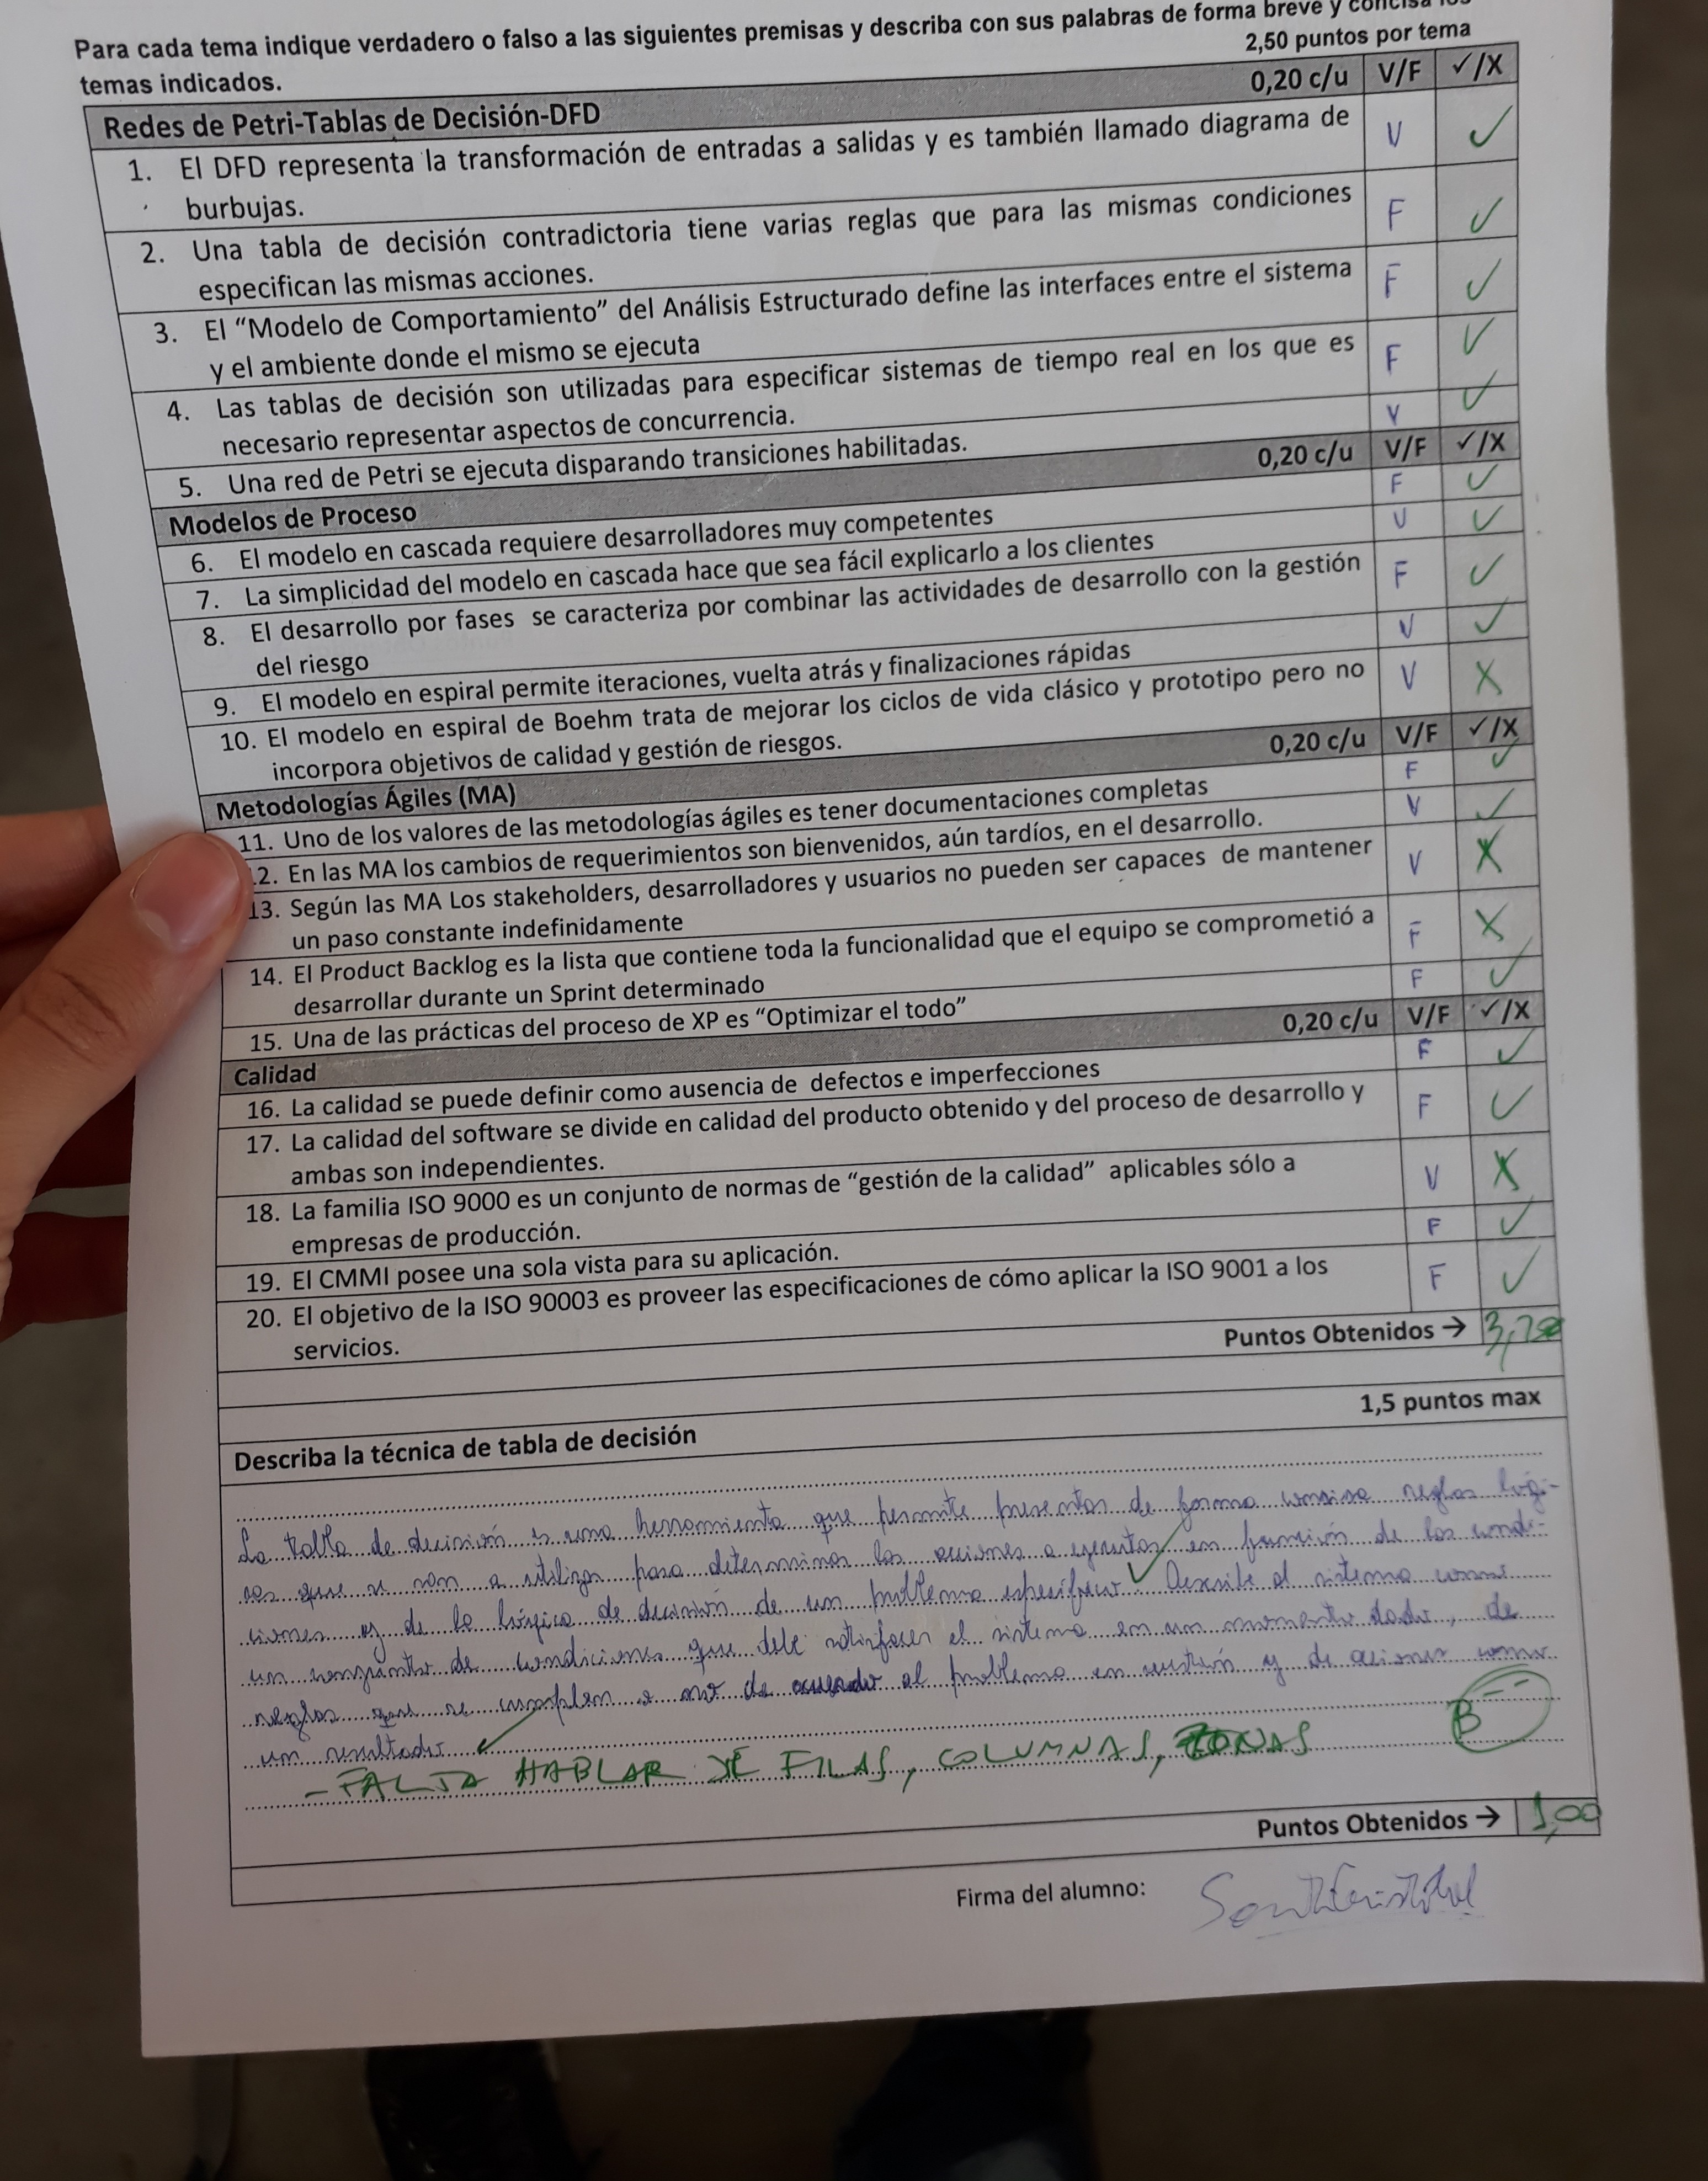 Para cada tema indique verdadero o falso a las siguientes premisas y describa con sus palabras de forma breve y concisa los
temas indicados.
2,50 puntos por tema
Redes de Petri-Tablas de Decisión-DFD 0,20 c/u V/F ✓/X
1. El DFD representa la transformación de entradas a salidas y es también llamado diagrama de V ✓
burbujas.
2. Una tabla de decisión contradictoria tiene varias reglas que para las mismas condiciones F ✓
especifican las mismas acciones.
3. El “Modelo de Comportamiento” del Análisis Estructurado define las interfaces entre el sistema F ✓
y el ambiente donde el mismo se ejecuta
4. Las tablas de decisión son utilizadas para especificar sistemas de tiempo real en los que es F ✓
necesario representar aspectos de concurrencia.
5. Una red de Petri se ejecuta disparando transiciones habilitadas. V ✓
Modelos de Proceso 0,20 c/u V/F ✓/X
6. El modelo en cascada requiere desarrolladores muy competentes F ✓
7. La simplicidad del modelo en cascada hace que sea fácil explicarlo a los clientes V ✓
8. El desarrollo por fases se caracteriza por combinar las actividades de desarrollo con la gestión F ✓
del riesgo
9. El modelo en espiral permite iteraciones, vuelta atrás y finalizaciones rápidas V ✓
10. El modelo en espiral de Boehm trata de mejorar los ciclos de vida clásico y prototipo pero no V X
incorpora objetivos de calidad y gestión de riesgos.
Metodologías Ágiles (MA) 0,20 c/u V/F ✓/X
11. Uno de los valores de las metodologías ágiles es tener documentaciones completas F ✓
2. En las MA los cambios de requerimientos son bienvenidos, aún tardíos, en el desarrollo. V ✓
13. Según las MA Los stakeholders, desarrolladores y usuarios no pueden ser capaces de mantener V X
un paso constante indefinidamente
14. El Product Backlog es la lista que contiene toda la funcionalidad que el equipo se comprometió a F X
desarrollar durante un Sprint determinado
15. Una de las prácticas del proceso de XP es “Optimizar el todo” F ✓
Calidad 0,20 c/u V/F ✓/X
16. La calidad se puede definir como ausencia de defectos e imperfecciones F ✓
17. La calidad del software se divide en calidad del producto obtenido y del proceso de desarrollo y F ✓
ambas son independientes.
18. La familia ISO 9000 es un conjunto de normas de “gestión de la calidad” aplicables sólo a V X
empresas de producción.
19. El CMMI posee una sola vista para su aplicación. F ✓
20. El objetivo de la ISO 90003 es proveer las especificaciones de cómo aplicar la ISO 9001 a los F ✓
servicios.
Puntos Obtenidos →
1,5 puntos max
Describa la técnica de tabla de decisión
La tabla de decisión es una herramienta que permite presentar de forma concisa reglas lógi-
cas que se van a utilizar para determinar las acciones a ejecutar en función de las condi-
ciones y de la lógica de decisión de un problema específico ✓. Describe el sistema como
un conjunto de condiciones que debe satisfacer el sistema en un momento dado, de
reglas que se cumplen o no de acuerdo al problema en cuestión y de acciones como
un resultado ✓
- FALTA HABLAR DE FILAS, COLUMNAS, ZONAS
B--
Puntos Obtenidos → 1,00
Firma del alumno: